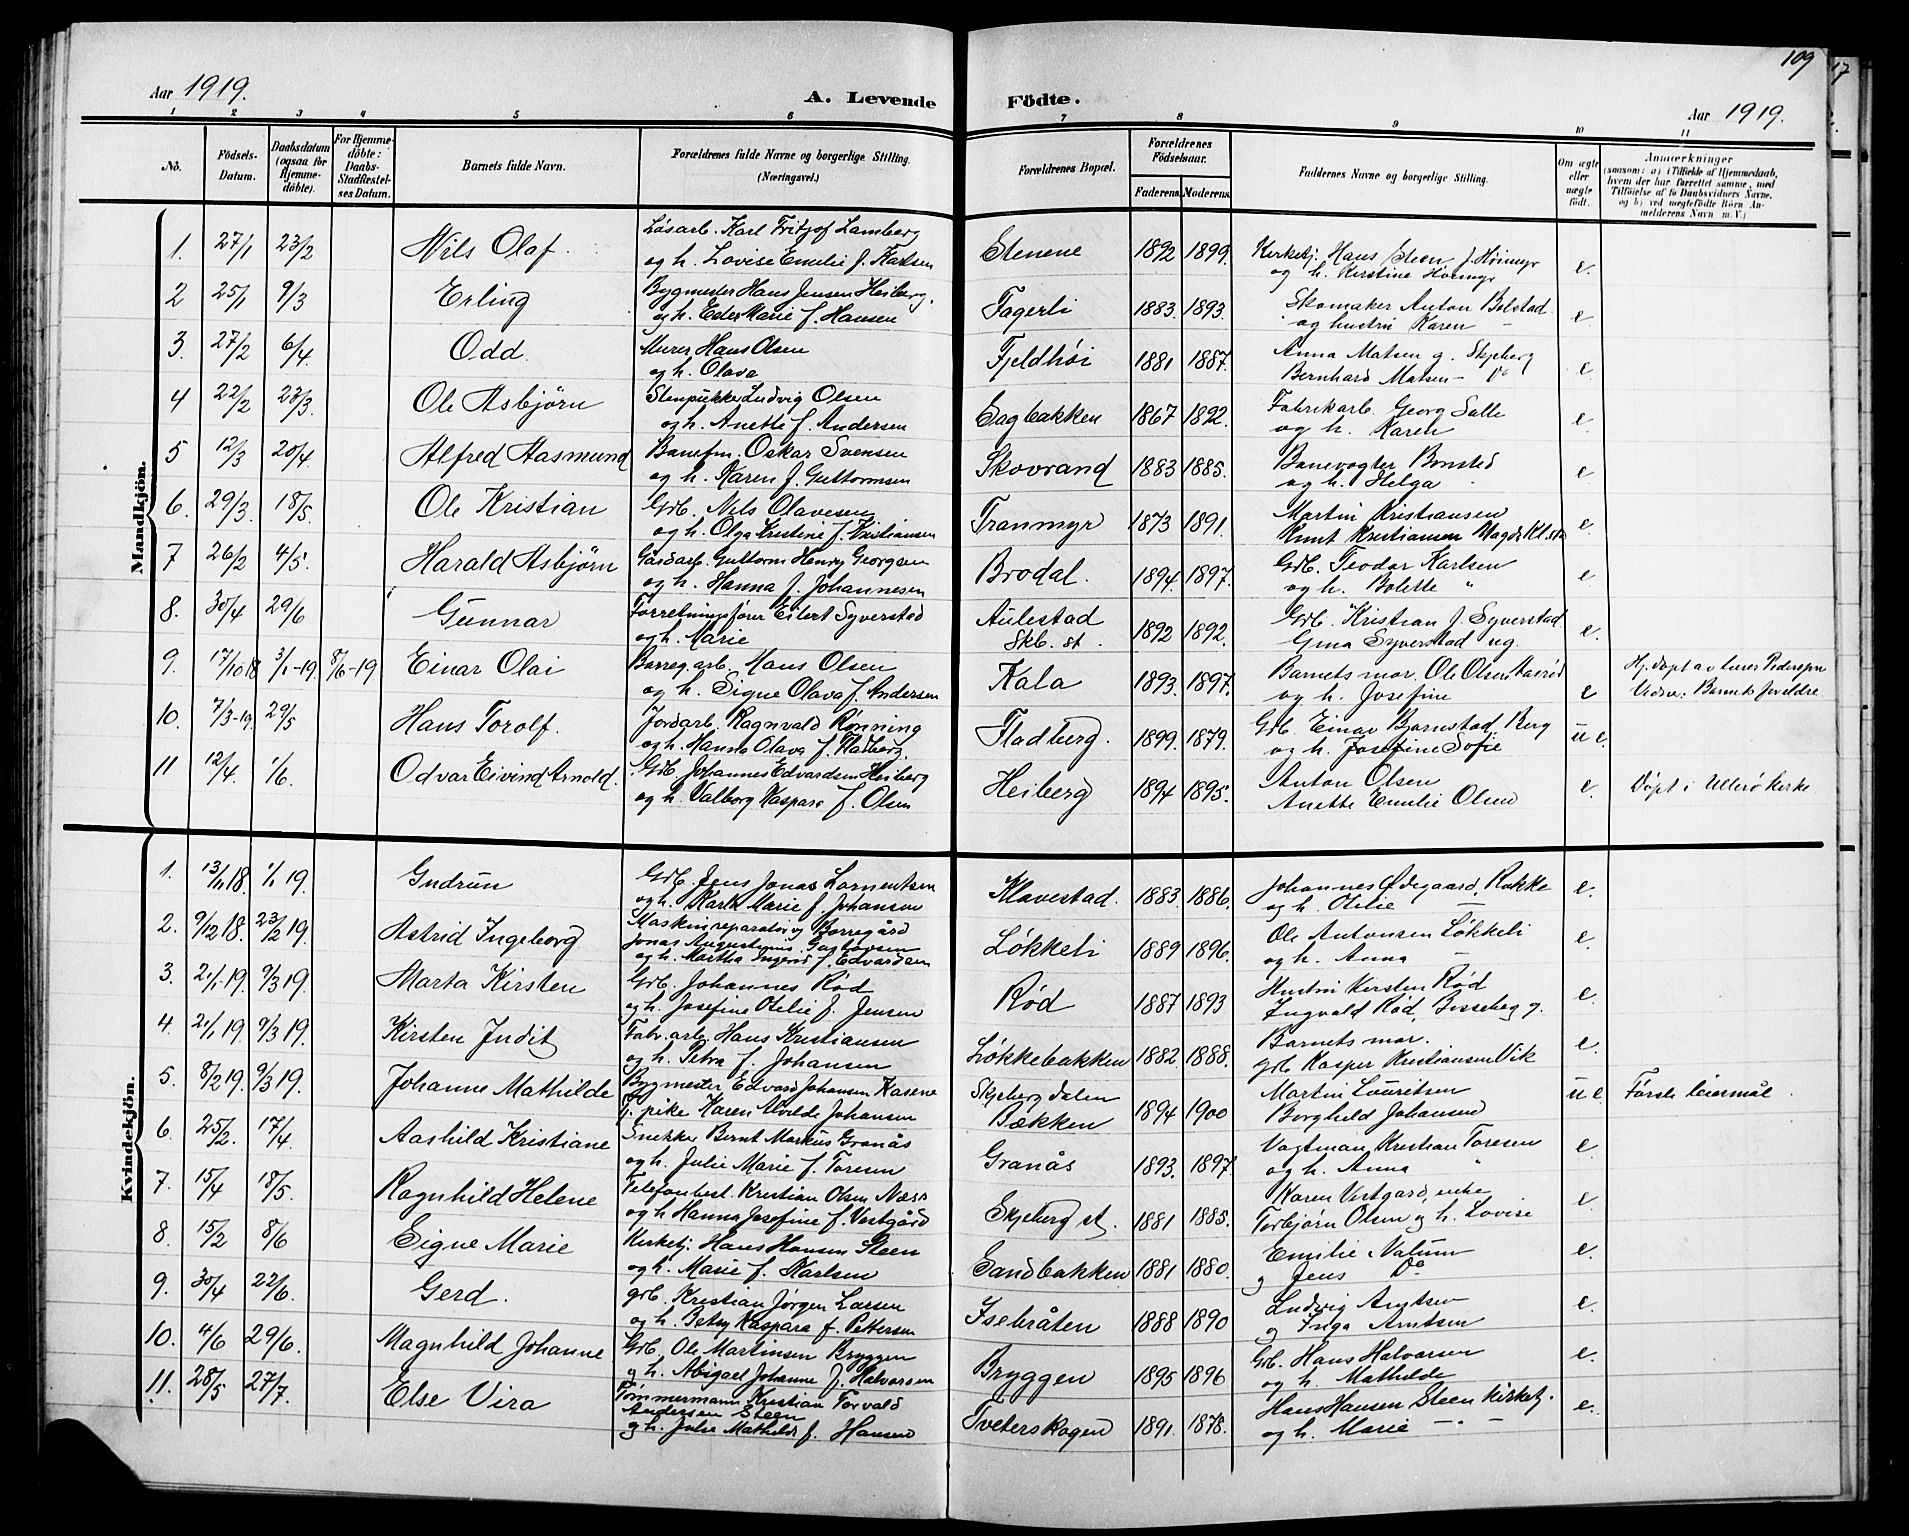 109
17
Aar 1919.
A. Levende Födte.
Aar 1919.
1 2 3 4 5 6 7 8 9 10 11
No.
Födsels-Datum.
Daabsdatum (ogsaa for Hjemme-döbte).
For Hjemme-döbte: Daabs-Stadfæstel-ses Datum.
Barnets fulde Navn.
Forældrenes fulde Navne og borgerlige Stilling. (Næringsvei.)
Forældrenes Bopæl.
Forældrenes Födselsaar.
Faderens. Moderens.
Faddernes Navne og borgerlige Stilling.
Om ægte eller uægte født.
Anmærkninger
(saasom: a) i Tilfælde af Hjemmedaab, hvem der har forrettet samme, med Tilföielse af to Daabsvidners Navne, og b) ved uægtefödte Börn An-melderens Navn m. V.)
Mandkjön.
1. 27/1 23/2 Nils Olaf. Løsarb. Karl Fritjof Lamberg Stenene 1892 1899. Kirketj. Hans Steen f. Høimyr e.
og h. Lovise Emelie f. Karlsen og h. Kirstine Høimyr
2 25/1 9/3 Erling Bygmester Hans Jensen Heiberg. Fagerli 1883. 1893. Skomaker Anton Bolstad e
og h. Marie f. Hansen og hustru Karen —
3. 27/2 6/4 Odd. Murer Hans Olsen Fjeldhøi 1881 1887. Anna Matsen g. Skjeberg e.
og h. Olava Bernhard Matsen — Do
4 22/2 23/3. Ole Asbjørn Stenpukker Ludvig Olsen Sagbakken 1867 1892. Fabrikarb. Georg Salle e.
og h. Anette f. Andersen og h. Karen
5 12/3 20/4. Alfred Aasmund Banefm. Oskar Svensen Skovrand 1883 1885. Banevogter Bonsted e.
og h. Karen f. Guttormsen og h. Helga
6. 29/3. 18/5. Ole Kristian Grb. Nils Olavesen Tranmyr 1873 1891. Martin Kristiansen e.
og h. Olga Kristine f. Kristiansen Knut Kristiansen
7 26/2 4/5. Harald Asbjørn Gårdarb. Guttorm Henry Georgsen Brodal. 1894. 1897. Grb. Teodor Karlsen e
og h. Hanna f. Johannesen og h. Bolette "
8. 30/4 29/6 Gunnar Forretningsfører Eilert Syverstad Aulestad 1892 1892. Grb. Kristian J. Syverstad. e.
og h. Marie Skb. st. Gina Syverstad ug.
9. 17/10 18 3/1-19. 8/6-19 Einar Olai Borreg. arb. Hans Olsen Kala 1893. 1897. Barnets mor. Ole Olsen e Hj. døpt av
og h. Signe Olava f. Andersen og h. Josefine Barnets foreldre.
10. 7/3-19. 29/5 Hans Torolf. Jordarb. Ragnvald Rønning Fladberg. 1899. 1879. Grb. Einar Bjørnstad, Berg u e.
og h. Hanna Olava f. Fladberg. og h. Josefine Sofie
11 12/4. 1/6. Odvar Eivind Arnold. Grb. Johannes Edvardsen Heiberg Heiberg 1894 1895. Anton Olsen e. Døpt i Ullerø kirke
og h. Valborg Kaspara f. Olsen Anette Emilie Olsen
Kvindekjön.
1. 13/11 18. 1/1 19. Gudrun Grb. Jens Jonas Lornentsen Klavestad. 1883. 1886. Johannes Ødegaard, Rokke e.
og h. Karla Marie f. Johansen og h. Otilie —
2. 9/12 18. 23/2 19. Astrid Ingeborg Maskinreparatør v Borregård Løkkeli 1889 1896. Ole Antonsen Løkkeli e.
Jonas Augustinius Gustavsen og h. Anna —
og h. Martha Ingerid f. Edvardsen
3. 21/1-19. 9/3 19. Marta Kirsten Grb. Johannes Rød Rød 1887 1893 Hustru Kirsten Rød e.
og h. Josefine Otilie f. Jensen Ingvald Rød,
4. 21/1 19 9/3 19. Kirsten Judit Fabr. arb. Hans Kristiansen Løkkebakken 1882. 1888. Barnets mor. e.
og h. Petra f. Johansen grb Kasper Kristiansen Vik
5. 8/2 19. 9/3 19. Johanne Mathilde Bygmester Edvard Johansen Kasene Skjebergdalen 1894 1900 Martin Lauritsen u e. Første leiermål.
f. pike Karen Alvilde Johansen Bækken Borghild Johansen
6. 25/2. 17/4 Aashild Kristiane Snekker Bernt Markus Granås Granås 1893. 1897 Vagtman Kristian Toresen e.
og h. Julie Marie f. Toresen og h. Anna "
7. 15/4 18/5. Ragnhild Helene Telefonbest. Kristian Olsen Næss Skjeberg st. 1881 1885. Karen Vestgård, enke e.
og h. Hanna Josefine f. Vestgård Torbjørn Olsen og h. Lovise
8. 15/2 8/6 Signe Marie Kirketj. Hans Hansen Steen Sandbakken 1881 1880. Emilie Natum e.
og h. Marie f. Karlsen og Jens Do
9. 30/4 22/6. Gerd. grb. Kristian Jørgen Larsen Isebråten 1888 1890 Ludvig Arntsen e.
og h. Betzy Kaspara f. Pettersen og Inga Arntsen
10. 4/6 29/6. Magnhild Johanne Grb. Ole Martinsen Bryggen Bryggen 1895 1896 Grb. Hans Halvorsen e.
og h. Abigael Johanne f. Halvorsen og h. Mathilde
11. 28/5 27/7. Else Vira Tømmermann Kristian Torvald Tveterskogen 1891. 1878. Hans Hansen Steen kirketj. e.
Andersen Steen og h. Marie — " —
og h. Julie Mathilde f. Hansen